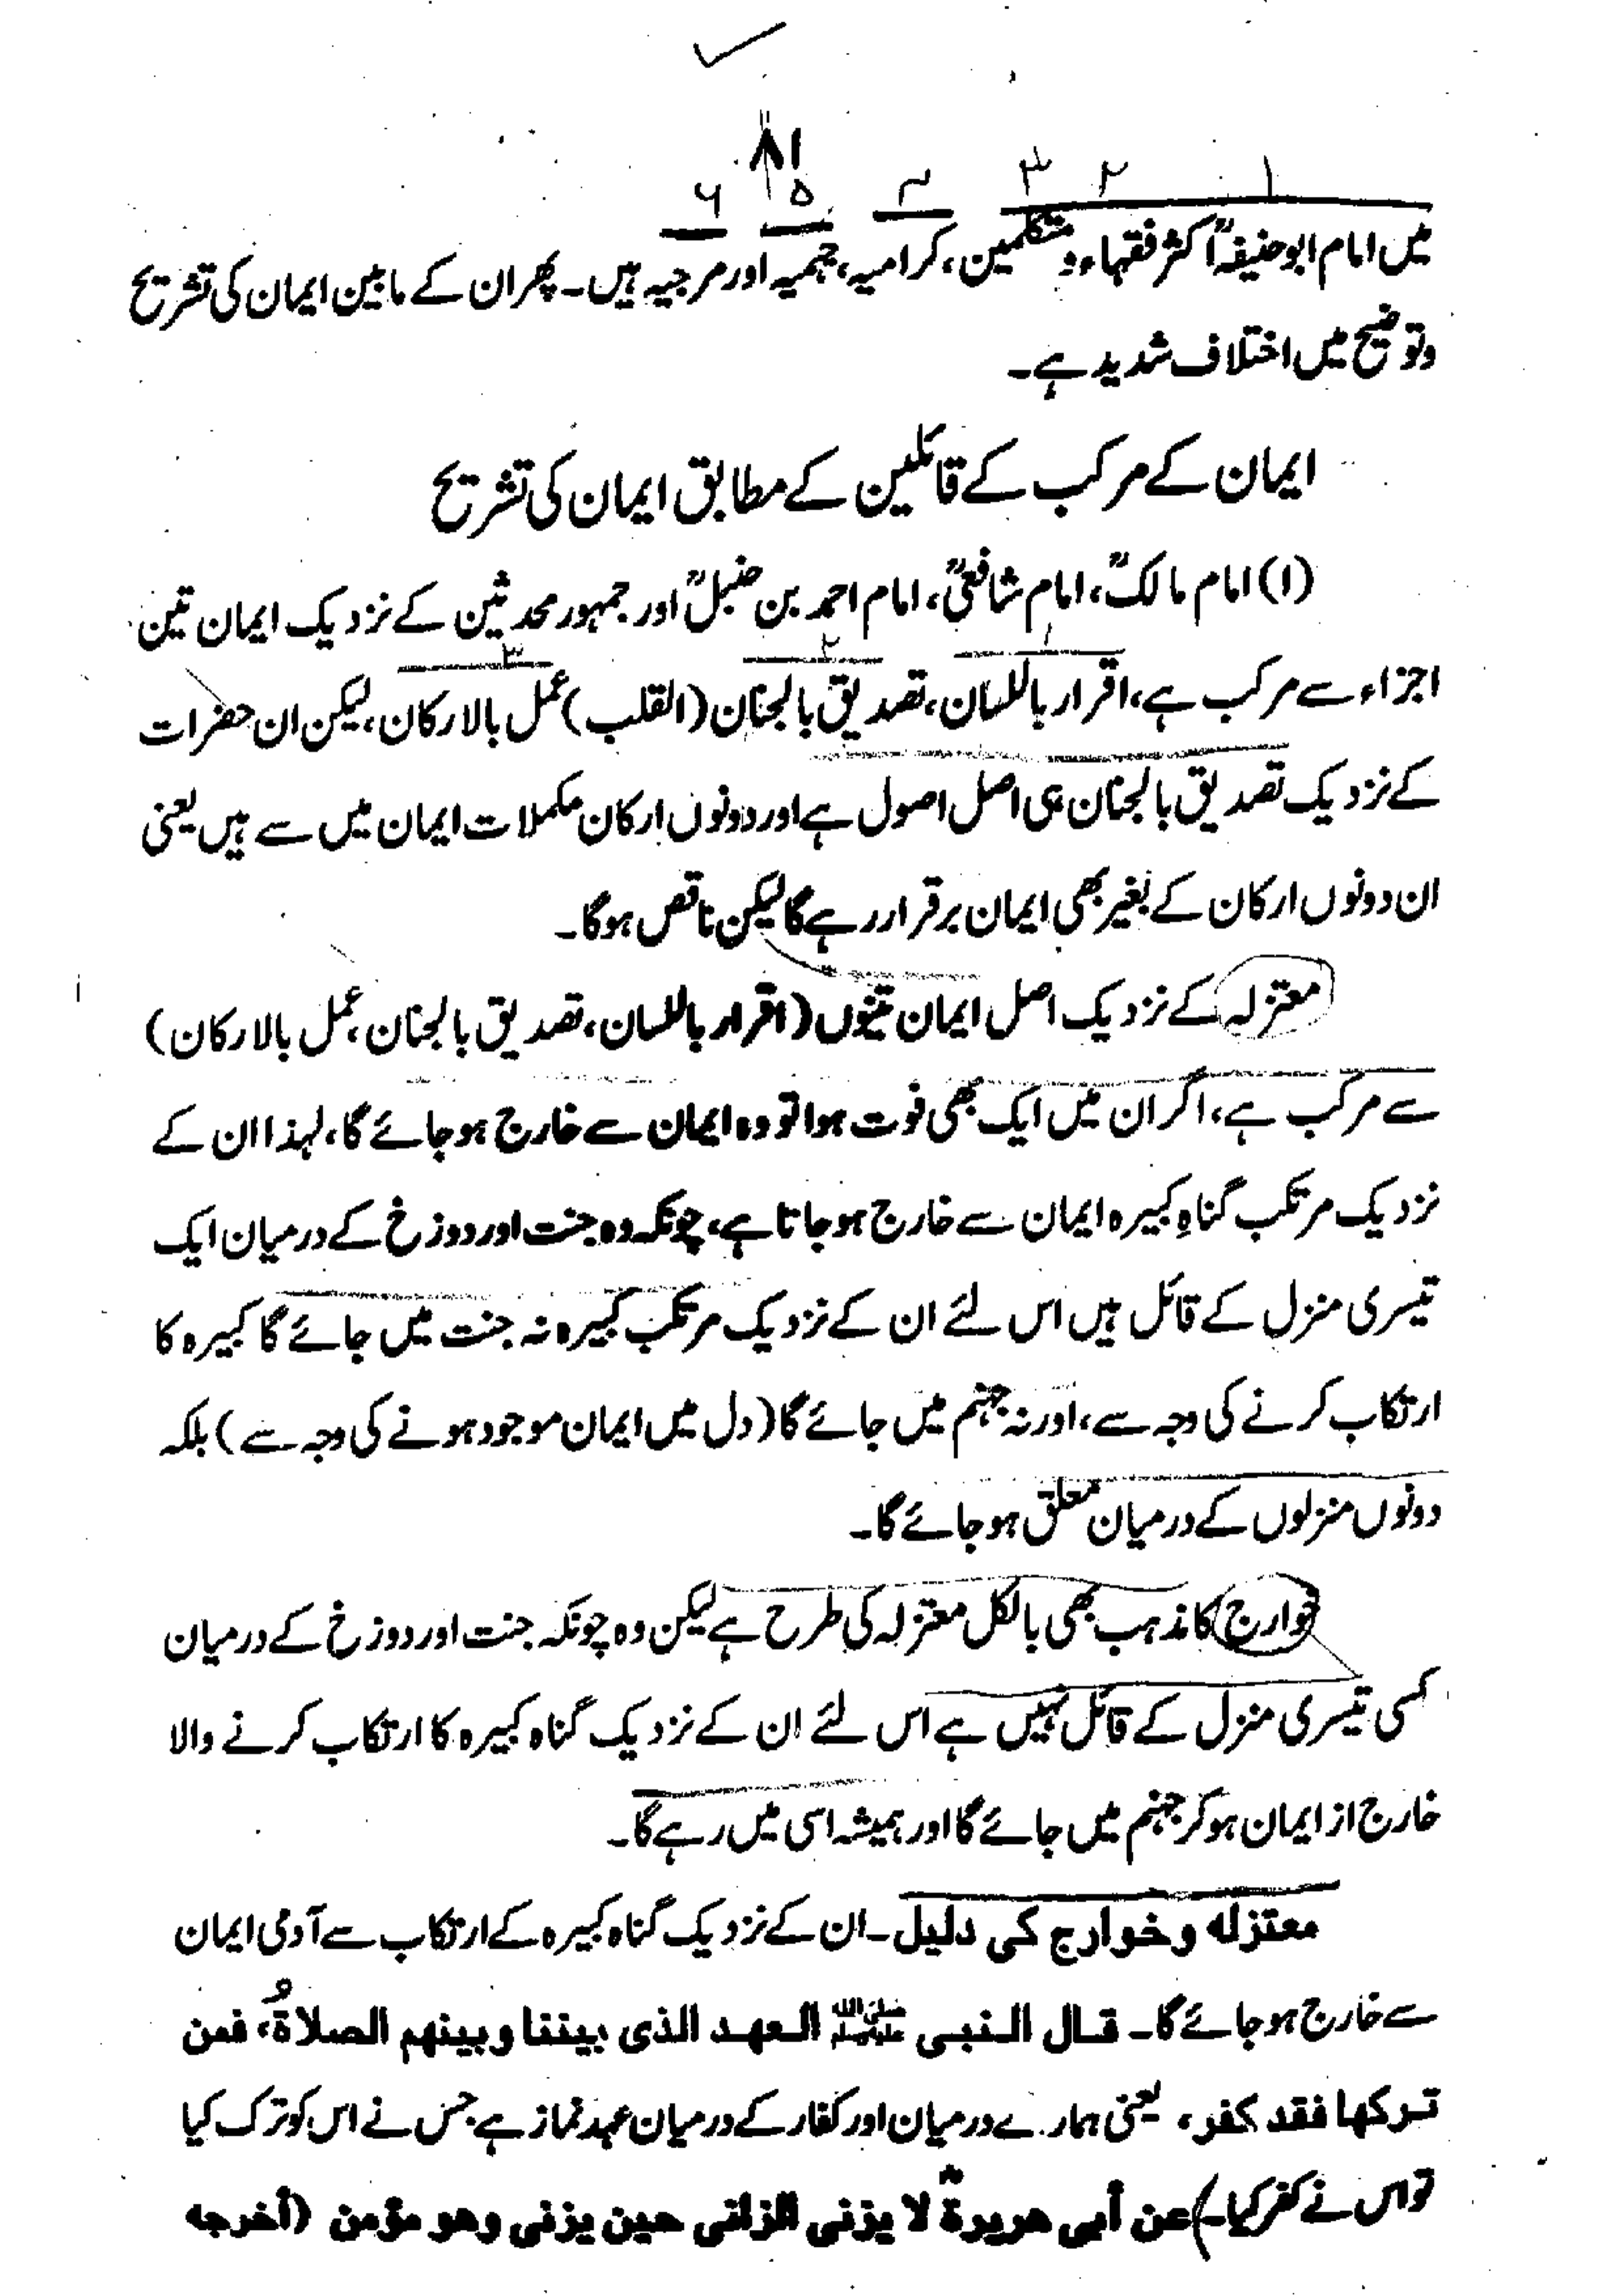 ۸۱
۱ ۲ ۳ ۴ ۵ ۶
میں امام ابوحنیفہؒ اکثر فقہاء و متکلمین، کرامیہ، جہمیہ اور مرجیہ ہیں۔ پھر ان کے مابین ایمان کی تشریح
وتوضیح میں اختلاف شدید ہے۔
ایمان کے مرکب کے قائلین کے مطابق ایمان کی تشریح
(۱) امام مالکؒ، امام شافعیؒ، امام احمد بن حنبلؒ اور جمہور محدثین کے نزدیک ایمان تین
۱ ۲ ۳
اجزاء سے مرکب ہے، اقرار باللسان، تصدیق بالجنان (القلب) عمل بالارکان، لیکن ان حضرات
کے نزدیک تصدیق بالجنان ہی اصل اصول ہے اور دونوں ارکان مکملات ایمان میں سے ہیں یعنی
ان دونوں ارکان کے بغیر بھی ایمان برقرار رہے گا لیکن ناقص ہوگا۔
معتزلہ کے نزدیک اصل ایمان تینوں (اقرار باللسان، تصدیق بالجنان، عمل بالارکان)
سے مرکب ہے، اگر ان میں ایک بھی فوت ہوا تو وہ ایمان سے خارج ہوجائے گا، لہذا ان کے
نزدیک مرتکب گناہِ کبیرہ ایمان سے خارج ہوجاتا ہے، چونکہ وہ جنت اور دوزخ کے درمیان ایک
تیسری منزل کے قائل ہیں اس لئے ان کے نزدیک مرتکب کبیرہ نہ جنت میں جائے گا کبیرہ کا
ارتکاب کرنے کی وجہ سے، اور نہ جہنم میں جائے گا (دل میں ایمان موجود ہونے کی وجہ سے) بلکہ
دونوں منزلوں کے درمیان معلق ہوجائے گا۔
خوارج کا مذہب بھی بالکل معتزلہ کی طرح ہے لیکن وہ چونکہ جنت اور دوزخ کے درمیان
کسی تیسری منزل کے قائل نہیں ہے اس لئے ان کے نزدیک گناہ کبیرہ کا ارتکاب کرنے والا
خارج از ایمان ہوکر جہنم میں جائے گا اور ہمیشہ اسی میں رہے گا۔
معتزلہ وخوارج کی دلیل۔ ان کے نزدیک گناہ کبیرہ کے ارتکاب سے آدمی ایمان
سے خارج ہوجائے گا۔ قال النبی ﷺ العهد الذی بیننا وبینهم الصلاةُ، فمن
ترکها فقد کفر، یعنی ہمارے درمیان اور کفار کے درمیان عہد نماز ہے جس نے اس کو ترک کیا
تو اس نے کفر کیا۔) عن أبی هریرةؓ لا یزنی الزانی حین یزنی وهو مؤمن (أخرجه